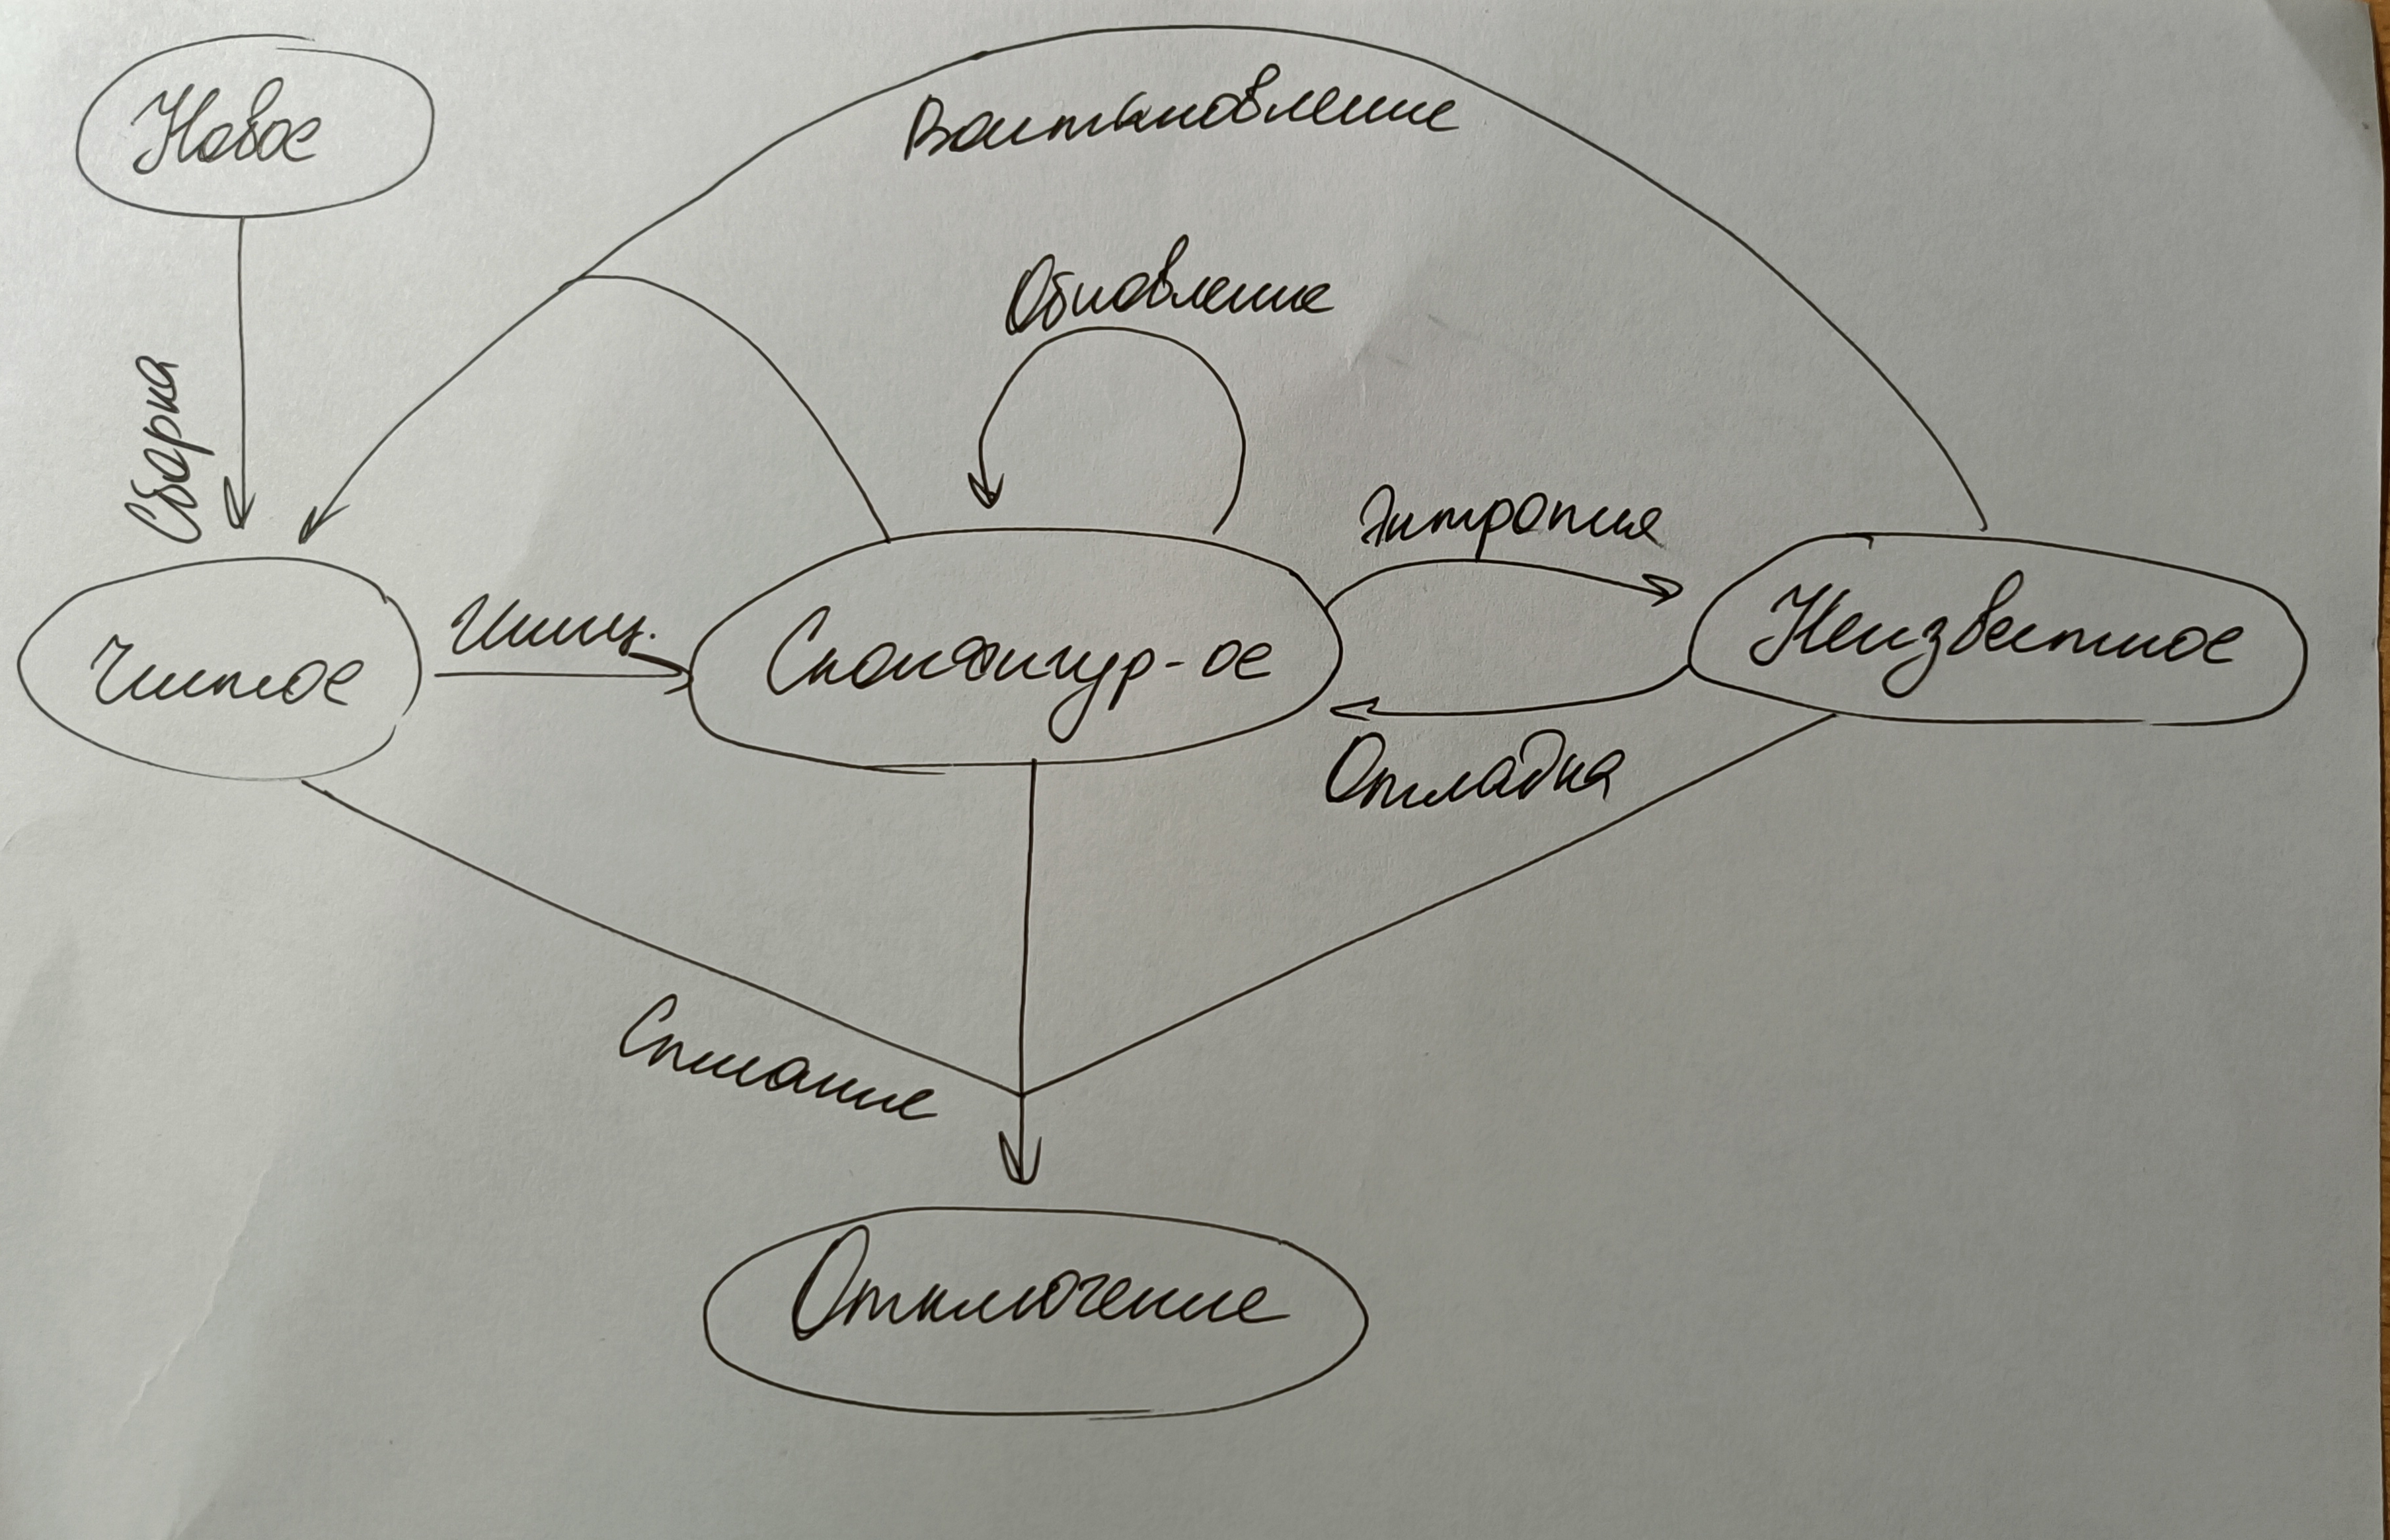 Новое
Восстановление
Обновление
Сборка
Энтропия
Иниц.
Чистое
Сконфигур-ое
Неизвестное
Отладка
Списание
Отключение